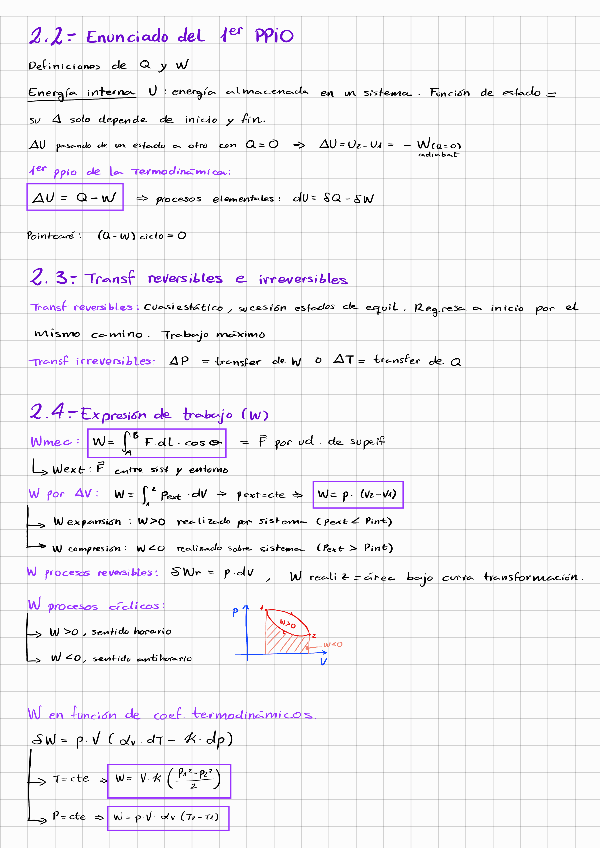 2.2.- Enunciado del 1er PPiO
Definiciones de Q y W
Energía interna U : energía almacenada en un sistema. Función de estado =
su Δ solo depende de inicio y fin.
ΔU pasando de un estado a otro con Q=0 ⇒ ΔU = U2 - U1 = - W(Q=0)
adiabat
1er ppio de la Termodinámica:
ΔU = Q - W ⇒ procesos elementales: dU = δQ - δW
Pointcaré: (Q-W) ciclo = 0
2.3.- Transf reversibles e irreversibles
Transf reversibles: Cuasiestático, sucesión estados de equil. Regresa a inicio por el
mismo camino. Trabajo máximo
Transf irreversibles: ΔP = transfer de W o ΔT = transfer de Q
2.4.- Expresión de trabajo (W)
Wmec: W = ∫_A^B F·dL·cos θ = F⃗ por ud. de superf
↳ Wext: F⃗ entre sist y entorno
W por ΔV: W = ∫_1^2 Pext·dV ⇒ pext=cte ⇒ W = p·(V2-V1)
→ W expansión: W>0 realizado por sistema (Pext < Pint)
→ W compresión: W<0 realizado sobre sistema (Pext > Pint)
W procesos reversibles: δWr = p·dV , W realit = área bajo curva transformación.
W procesos cíclicos:
→ W>0, sentido horario
→ W<0, sentido antihorario
P
1
W>0
2
W<0
V
W en función de coef. termodinámicos.
δW = p·V (αv·dT - K·dp)
→ T=cte ⇒ W = V·K ((P1²-P2²)/2)
→ P=cte ⇒ W = p·V·αv (T2-T1)